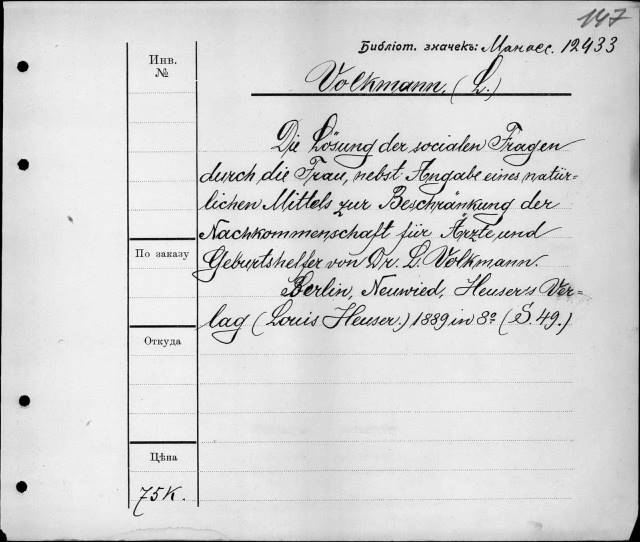 147
Библіот. значекъ: Манасс. 12433
Инв.
№
Volkmann, (L.)
Die Lösung der socialen Fragen
durch die Frau, nebst Angabe eines natür-
lichen Mittels zur Beschränkung der
Nachkommenschaft für Ärzte und
По заказу
Geburtshelfer von Dr. L. Volkmann.
Berlin, Neuwied, Heuser's Ver-
lag (Louis Heuser.) 1889 in 8º (S. 49.)
Откуда
Цѣна
75к.